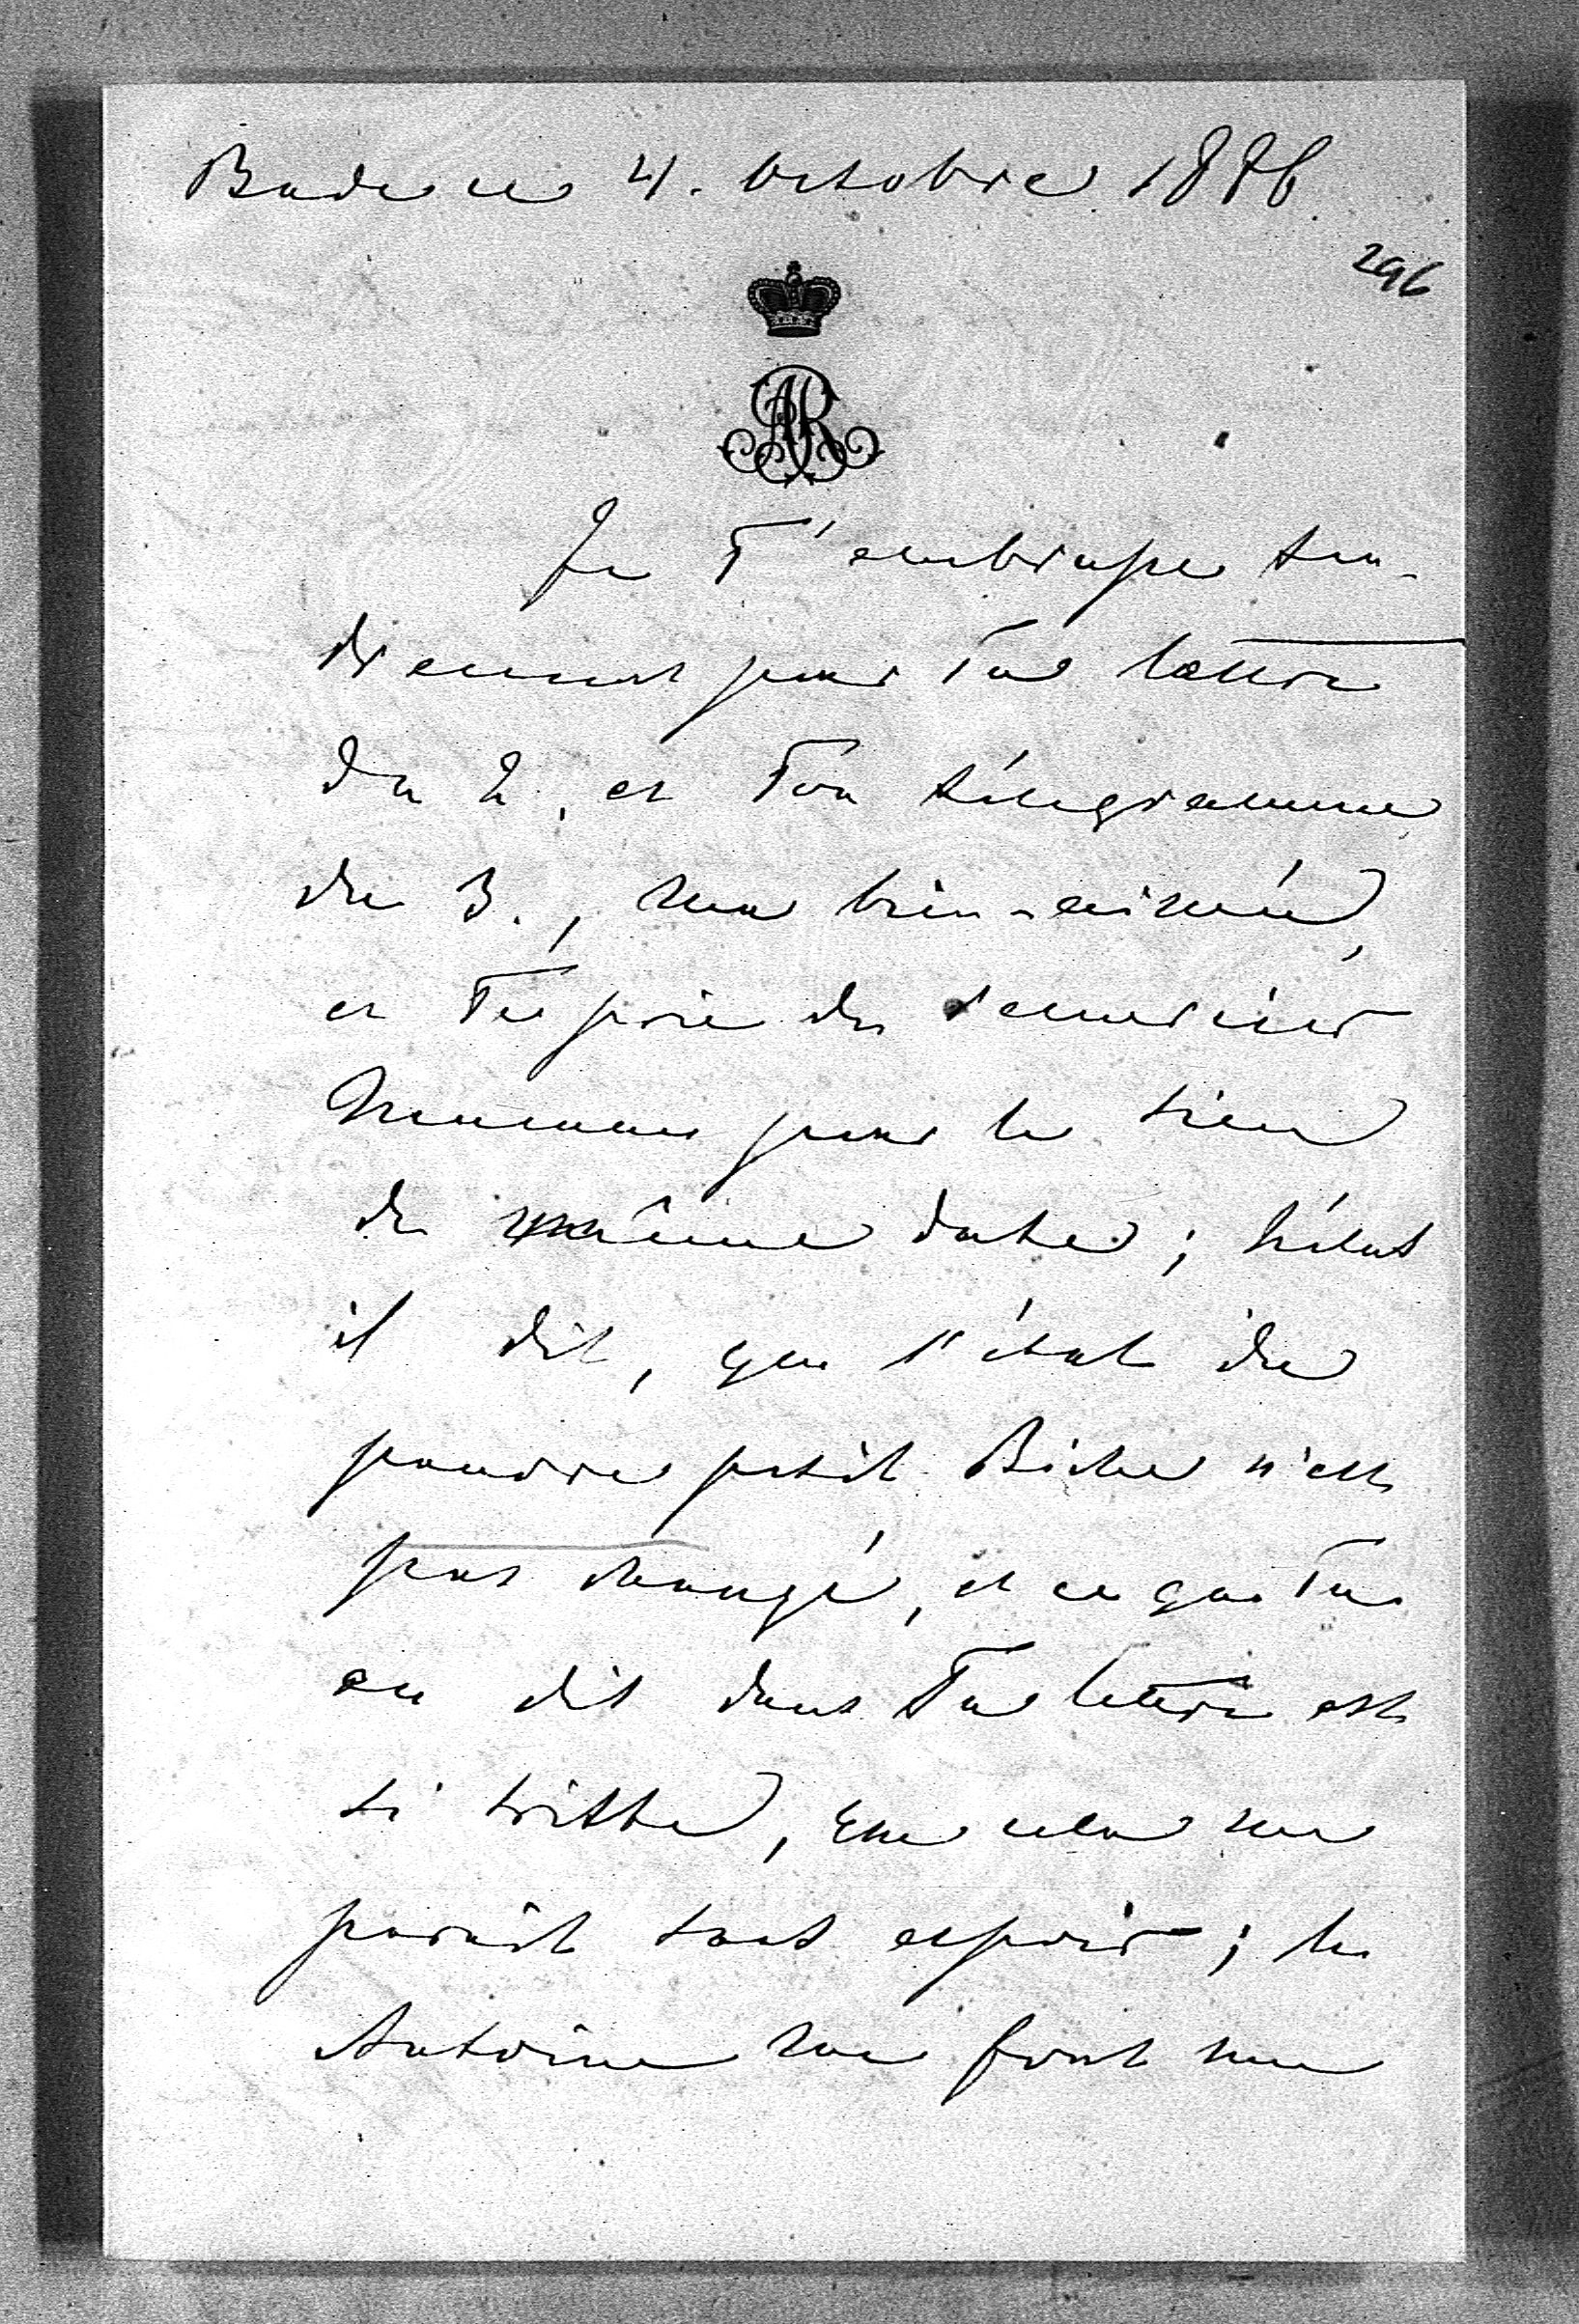 Bade ce 4. Octobre 1876
296
AR
Je T'embrasse ten-
drement pour Ta lettre
du 2. et Ton télégramme
du 3., ma bien-aimée,
et Te prie de remercier
pour le sien
de même date; hélas
il dit, que l'état du
pauvre petit n'est
pas changé, et ce que Tu
en dit dans Ta lettre est
si triste, que cela me
paraît sans espoir; les
Antoine me font une